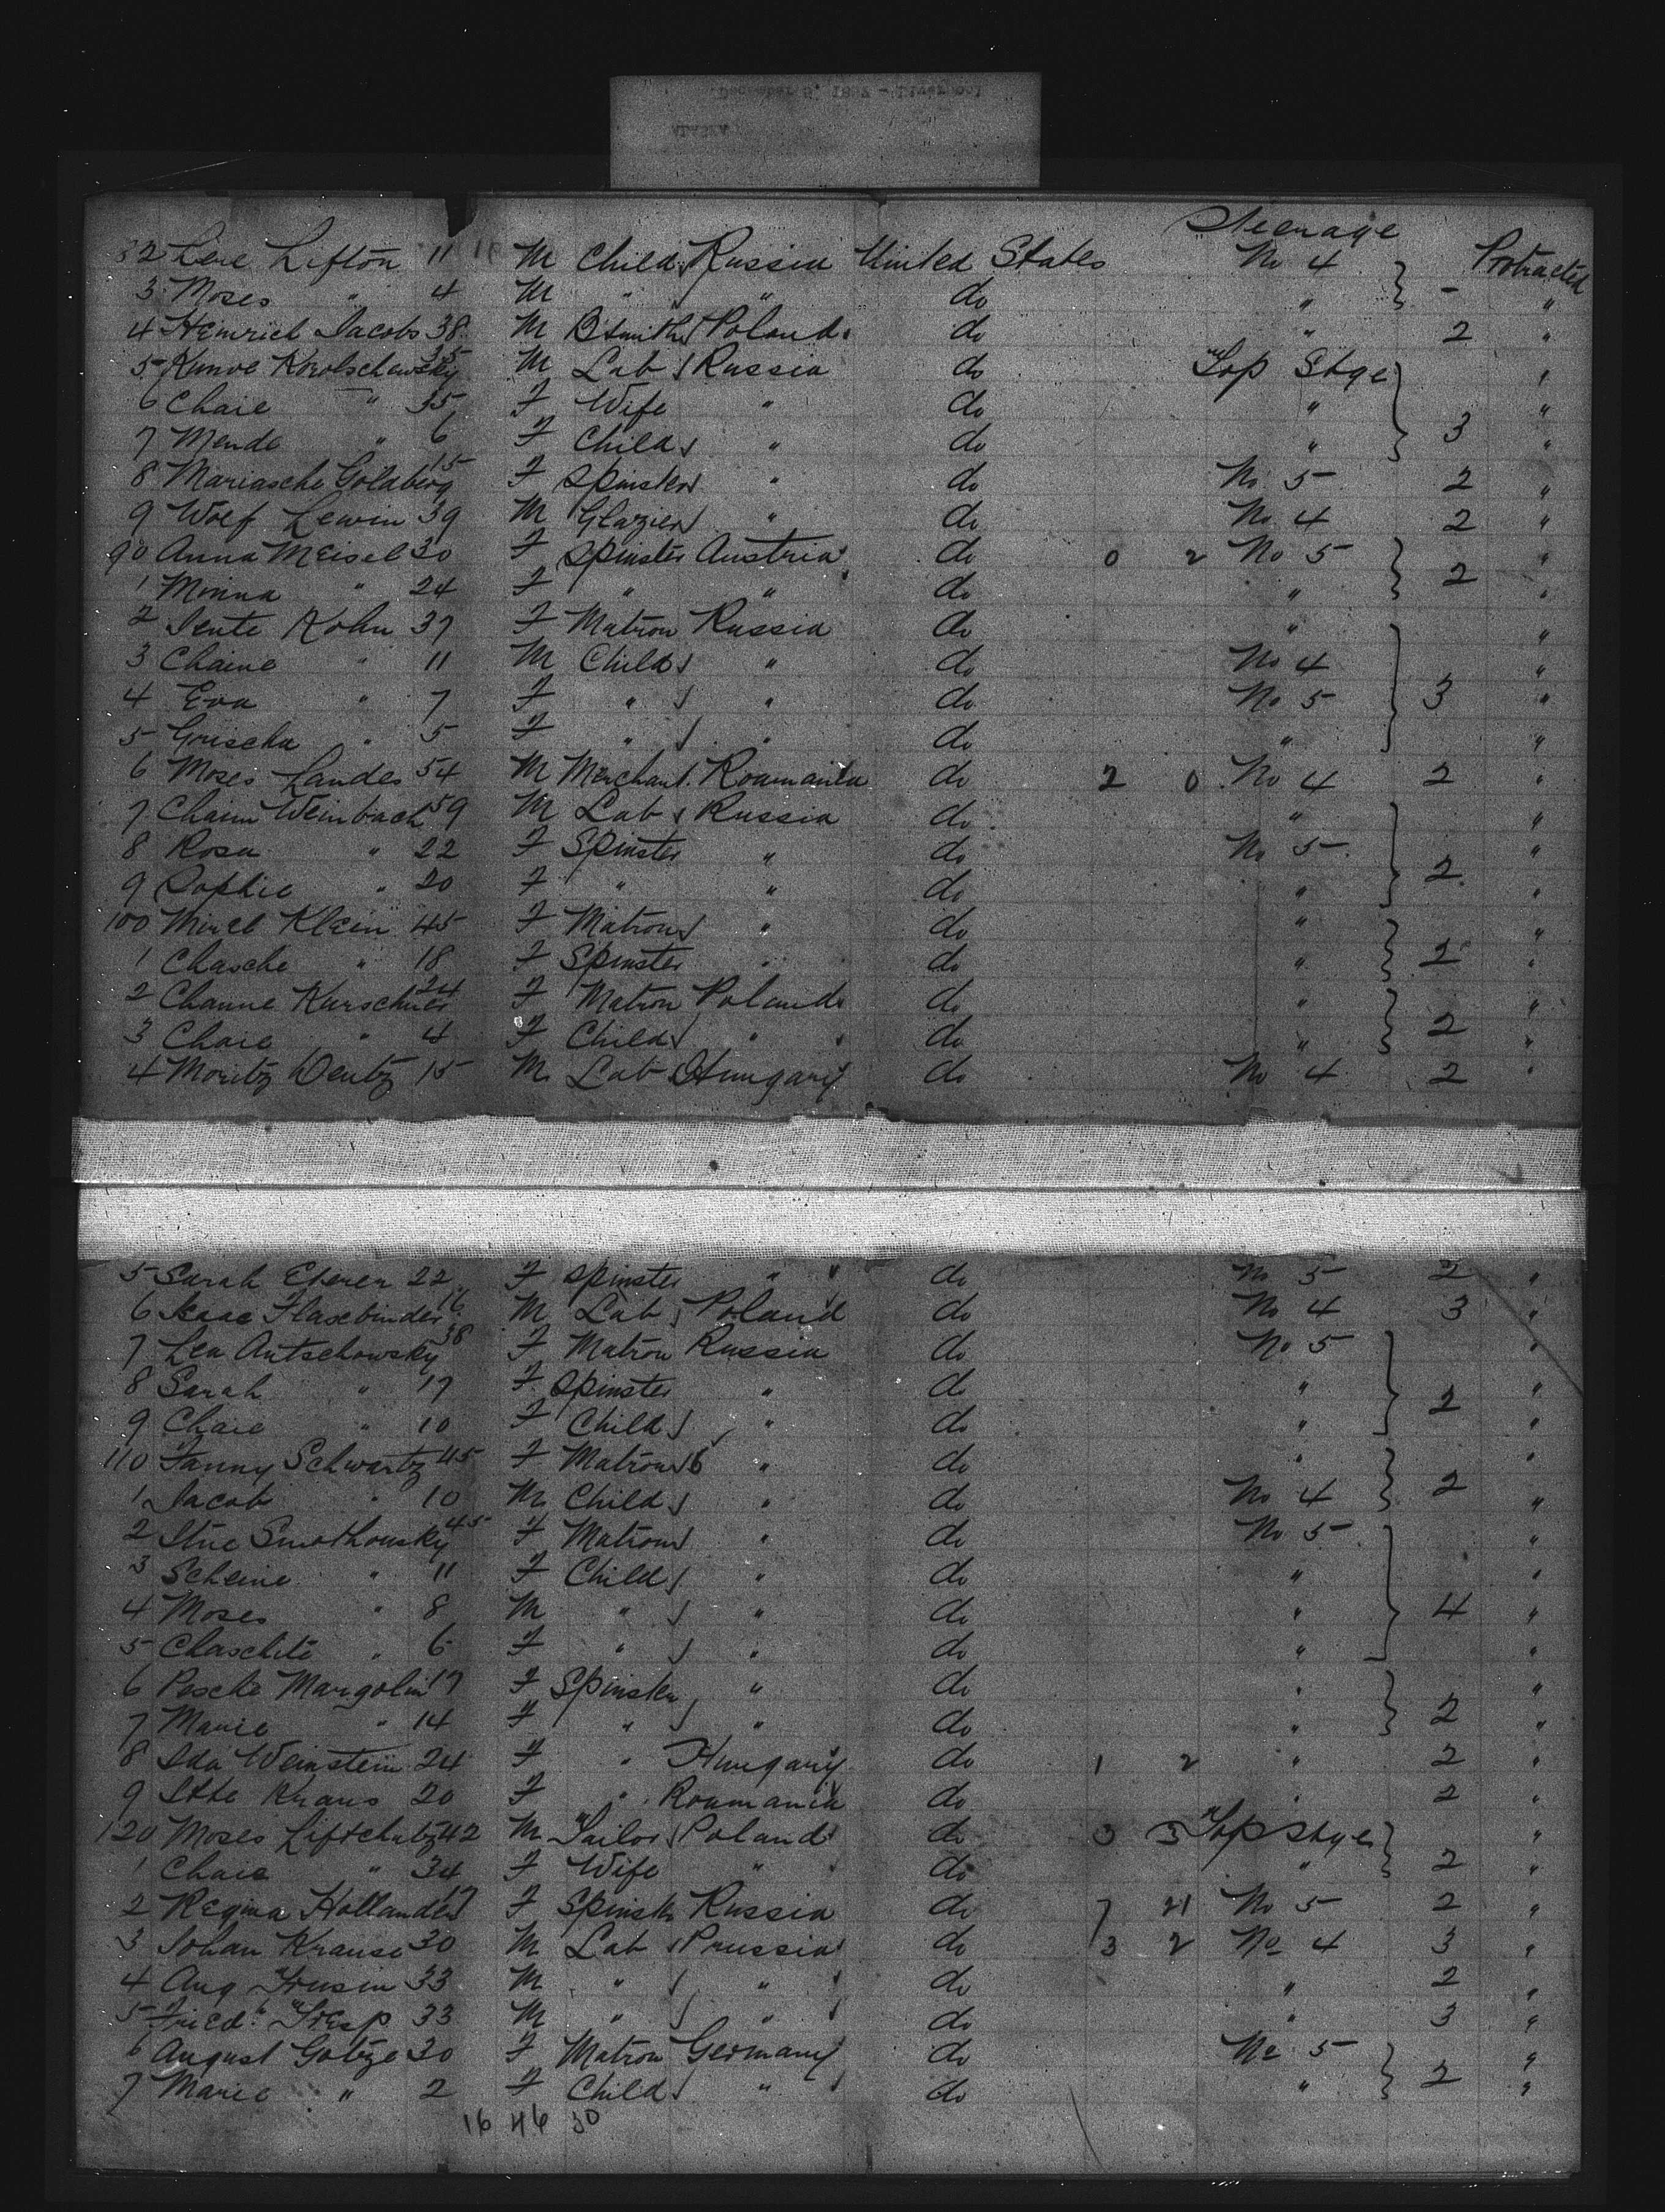 December 5, 1887 - Liverpool
ALASKA
Steerage
82 Leie Lifton 11 M Child Russia United States No 4 - Protracted
3 Moses " 4 M " " do " "
4 Heinrich Jacobs 38 M Bsmith Poland do " 2 "
5 Kunoe Korolschewsky 35 M Lab Russia do Top Stge "
6 Chaie " 35 F Wife " do " "
7 Mende " 6 F Child " do " 3 "
8 Mariasche Goldberg 15 F Spinster " do No 5 2 "
9 Wolf Lewin 39 M Glazier " do No 4 2 "
90 Anna Meisel 30 F Spinster Austria do 0 2 No 5 "
1 Minna " 24 F " " do " 2 "
2 Jente Kohn 37 F Matron Russia do " "
3 Chaine " 11 M Child " do No 4 "
4 Eva " 7 F " " do No 5 3 "
5 Grischa " 5 F " " do " "
6 Moses Landes 54 M Merchant Roumania do 2 0 No 4 2 "
7 Chaim Weinbach 59 M Lab Russia do " "
8 Rosa " 22 F Spinster " do No 5 "
9 Sophie " 20 F " " do " 2 "
100 Mirel Klein 45 F Matron " do " "
1 Chasche " 18 F Spinster " do " 2 "
2 Channe Kurschner 24 F Matron Poland do " "
3 Chaie " 4 F Child " do " 2 "
4 Moritz Deutz 15 M Lab Hungary do No 4 2 "
5 Sarah Eherer 22 F Spinster " do No 5 2 "
6 Isaac Flasebinder 16 M Lab Poland do No 4 3 "
7 Lea Antschowsky 38 F Matron Russia do No 5 "
8 Sarah " 17 F Spinster " do " 2 "
9 Chaie " 10 F Child " do " "
110 Fanny Schwartz 45 F Matron 6 " do " "
1 Jacob " 10 M Child " do No 4 2 "
2 Itne Smothowsky 45 F Matron " do No 5 "
3 Scheine " 11 F Child " do " "
4 Moses " 8 M " " do " 4 "
5 Chaschite " 6 F " " do " "
6 Pesche Margolin 17 F Spinster " do " "
7 Marie " 14 F " " do " 2 "
8 Ida Weinstein 24 F " Hungary do 1 2 " 2 "
9 Itte Kraus 20 F " Roumania do " 2 "
120 Moses Liftchutz 42 M Tailor Poland do 3 3 Top Stge "
1 Chaie " 34 F Wife " do " 2 "
2 Regina Hollander 17 F Spinster Russia do 7 21 No 5 2 "
3 Johan Krause 30 M Lab Prussia do 3 2 No 4 3 "
4 Aug 33 M " " do " 2 "
5 Fried. Tresp 33 M " " do " 3 "
6 August Gotze 30 F Matron Germany do No 5 "
7 Marie " 2 F Child " do " 2 "
16 46 30